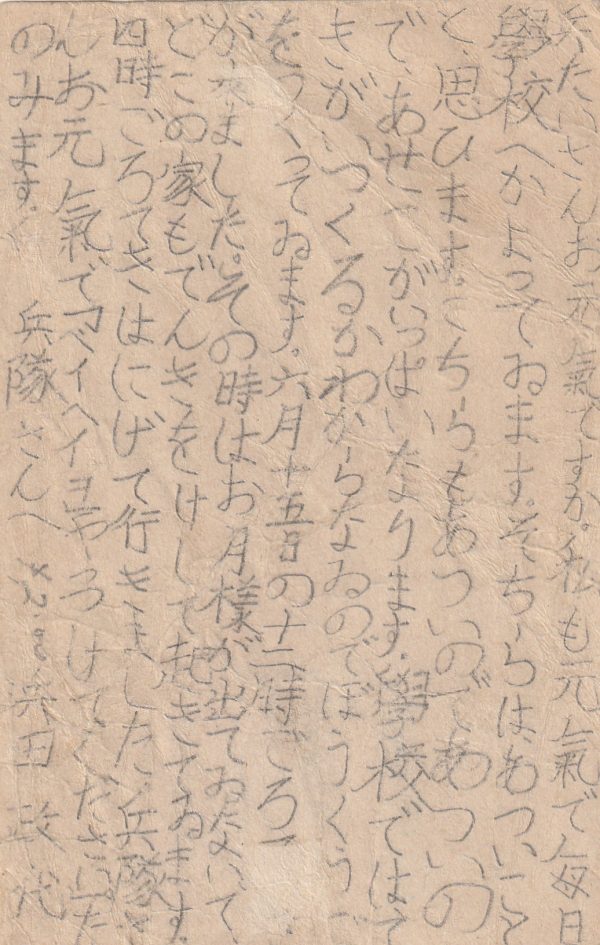 兵たいさんお元氣ですか。私も元氣で毎日
學校へかよってゐます。そちらはあついこと
と、思ひます。こちらもあついので、あついの
で、あせこがいっぱいたよります。學校ではて
きがいつくるかわからなゐのでぼうくうご
をつくってゐます。六月十五日の十二時ごろて
が来ました。その時はお月様が出てゐたいて、
どこの家もでんきをけして起きてゐます。
四時ごろてきはにげて行きました、兵隊さ
んお元氣でベイヘイヨヲうけてくださいた
のみます。
兵隊さんへ 濱田政代